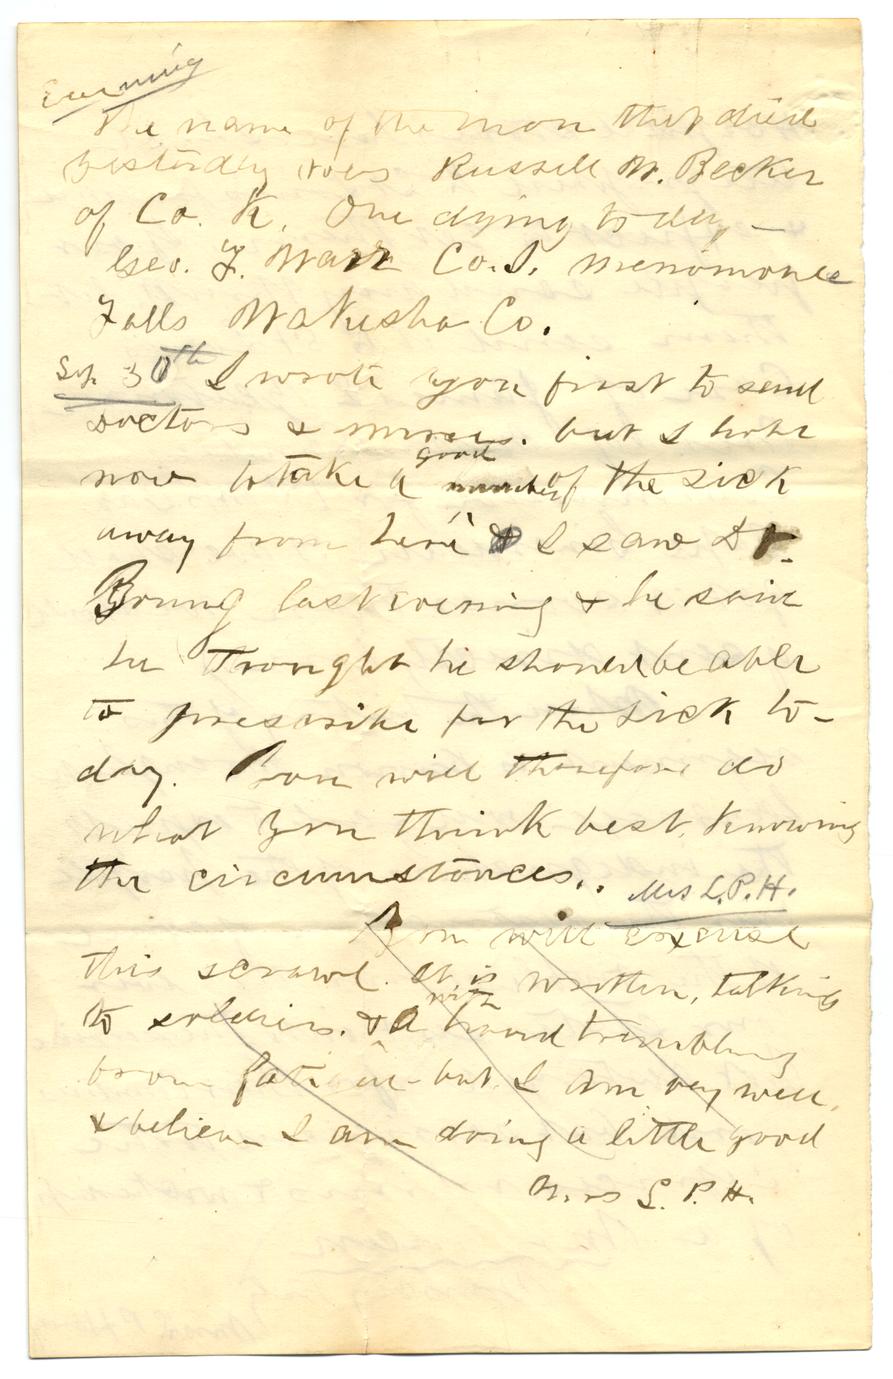 Evening
The name of the man that died
yesterday was Russell W. Becker
of Co. K. One dying to day –
Geo. F. Warr Co. I. Menomonee
Falls Wakesha Co.
Sep. 30th I wrote you first to send
Doctors & nurses. but I hope
now to take a good number of the sick
away from here I saw Dr.
Young last evening & he said
he thought he should be able
to prescribe for the sick to-
day. You will therefore do
what you think best, knowing
the circumstances.. Mrs L.P.H.
You will excuse
this scrawl. It is written, talking
to soldiers. & with a hand trembling
from fatigue - but I am very well,
& believe I am doing a little good
Mrs L. P. H.